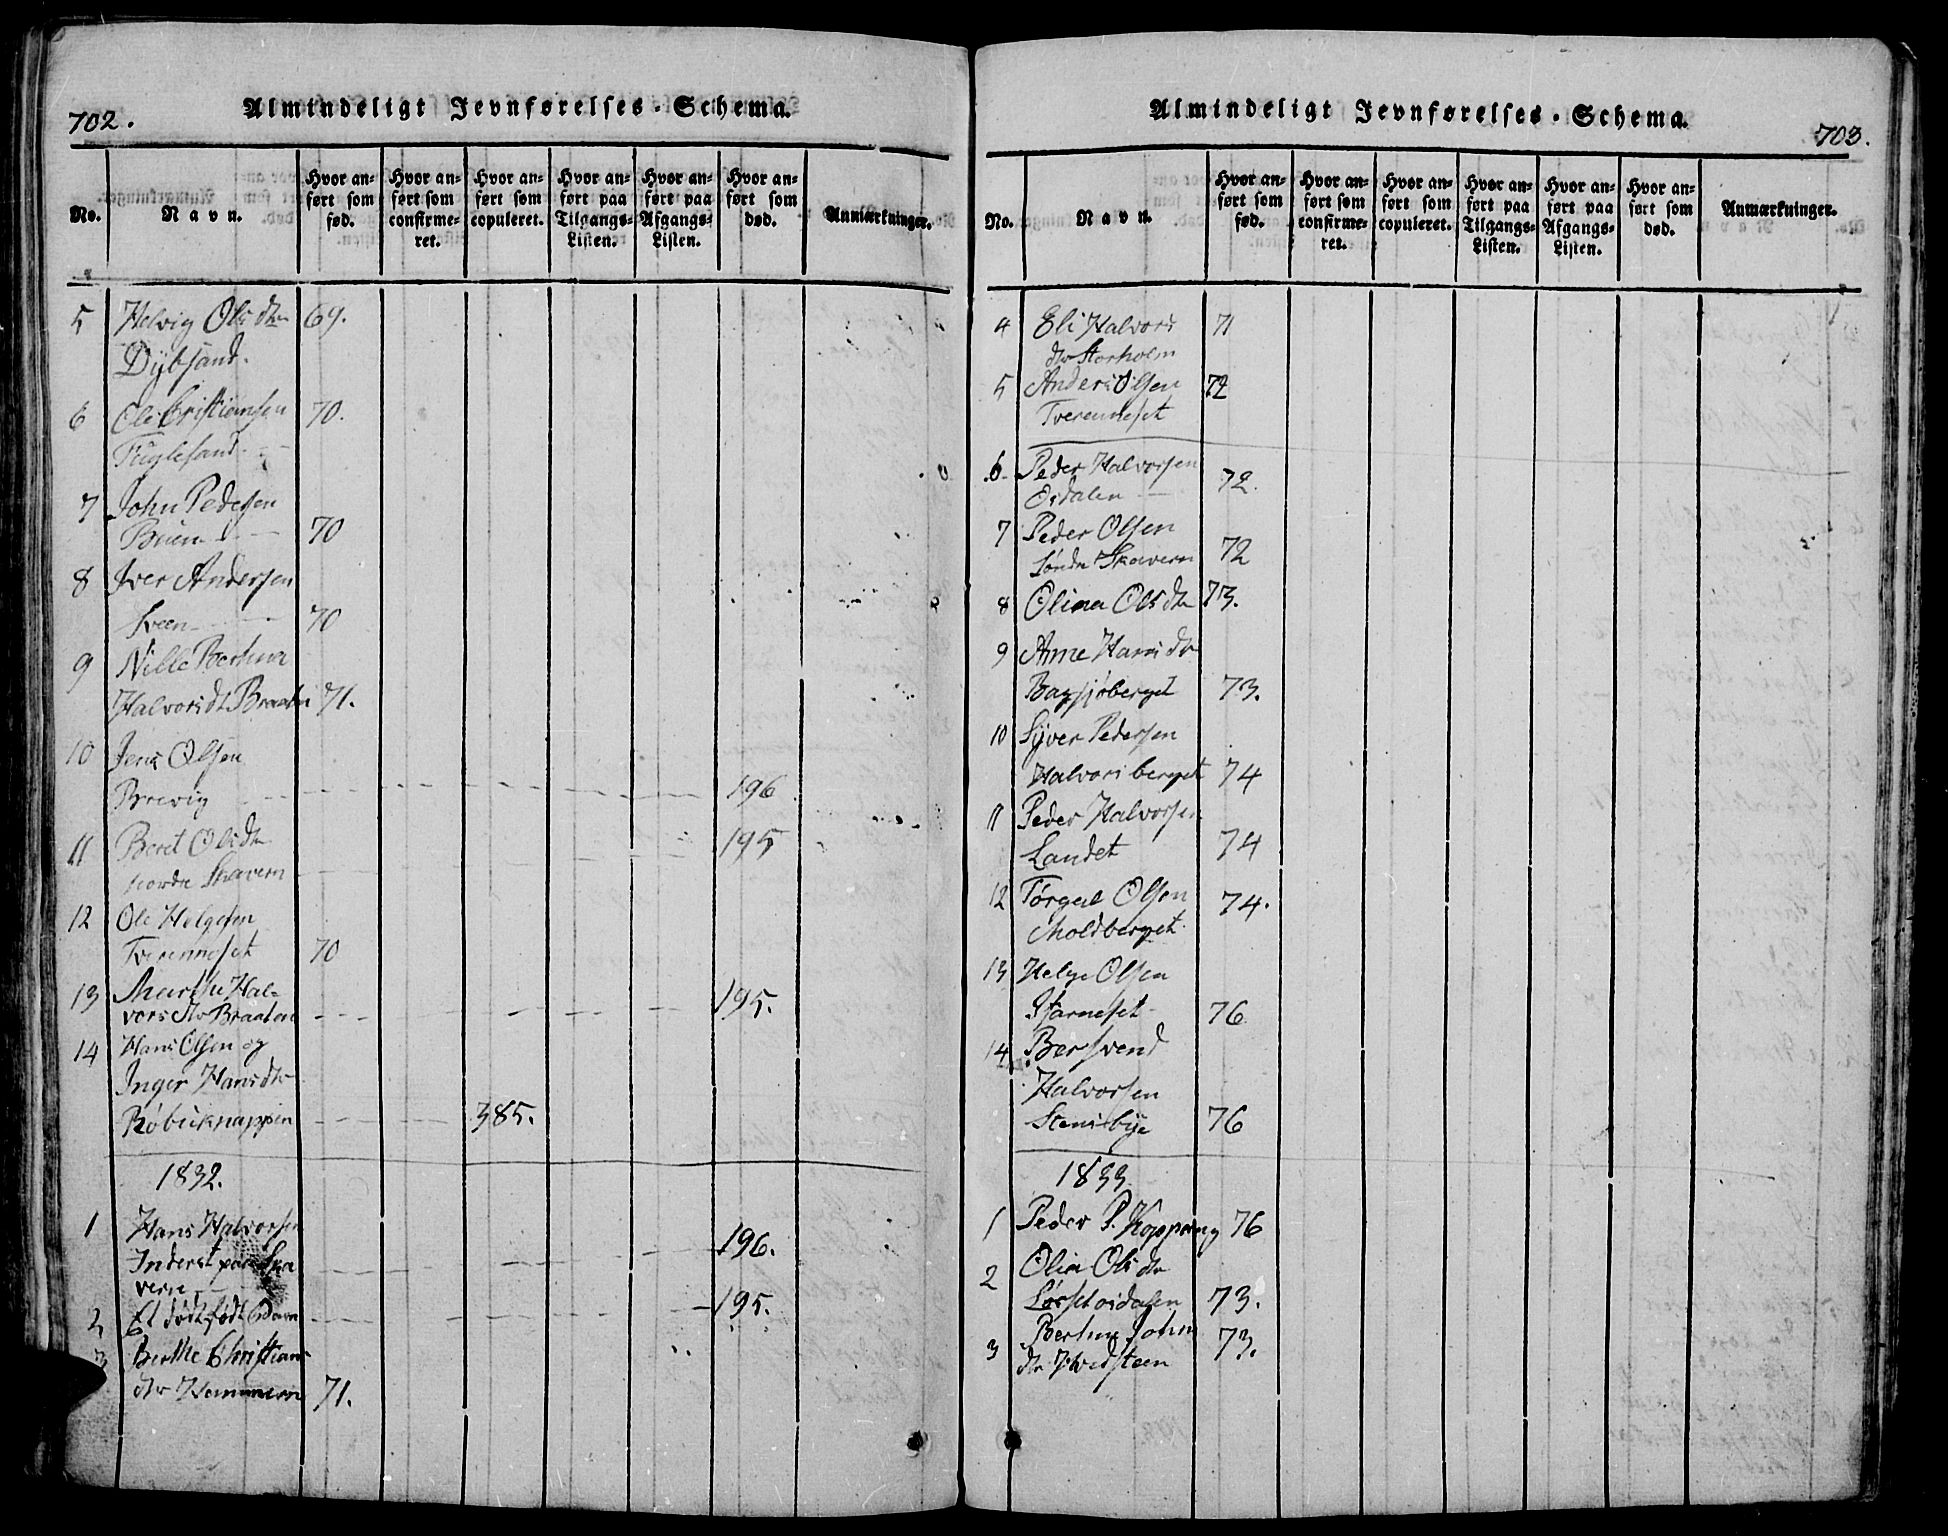 702.
Almindeligt Jevnførelses-Schema.
No.
Navn.
Hvor an-
ført som
fød.
Hvor an-
ført som
confirme-
ret.
Hvor an-
ført som
copuleret.
Hvor an-
ført paa
Tilgangs-
Listen.
Hvor an-
ført paa
Afgangs-
Listen.
Hvor an-
ført som
død.
Anmærkninger.
5 Helvig Olsdtr 69.
Dybsand.
6 Ole Cristiansen 70.
Fuglesand
7 John Pedersen
Buen 70
8 Iver Andersen
Sveen 70
9 Nille Berthea
Halvorsdtr Braaten 71.
10 Jens Olsen
Brevig 196
11 Beret Olsdtr 195
nordre Skavern
12 Ole Helgesen
Tverenneset 70
13 Marthe Hal-
vorsdtr Braaten 195.
14 Hans Olsen og
Inger Hansdtr
Røbuknappen 385.
1832.
1 Hans Halvorsen 196.
Inderst paa Ska
vern
2 Et dødfødt Barn 195.
3 Berthe Christians
dtr Hammeren 71.
Almindeligt Jevnførelses-Schema.
703.
No.
Navn.
Hvor an-
ført som
fød.
Hvor an-
ført som
confirme-
ret.
Hvor an-
ført som
copuleret.
Hvor an-
ført paa
Tilgangs-
Listen.
Hvor an-
ført paa
Afgangs-
Listen.
Hvor an-
ført som
død.
Anmærkninger.
4 Eli Halvors 71
dtr Storholm
5 Anders Olsen 72
Tverenneset
6 Peder Halvorsen
Osdalen 72.
7 Peder Olsen
søndre Skavern 72
8 Olina Olsdtr 73.
9 Anne Hansdtr
Bagsjøberget 73.
10 Syver Pedersen
Halvorsberget 74
11 Peder Halvorsen
Landet 74
12 Törgal Olsen 74.
Moldberget
13 Helge Olsen
Starneset 76
14 Bersvend
Halvorsen
Stensbye 76
1833
1 Peder P. Koppang 76
2 Olia Olsdtr
Lørsetosdalen 73.
3 Berthe Johns 73.
dtr Hvidsteen